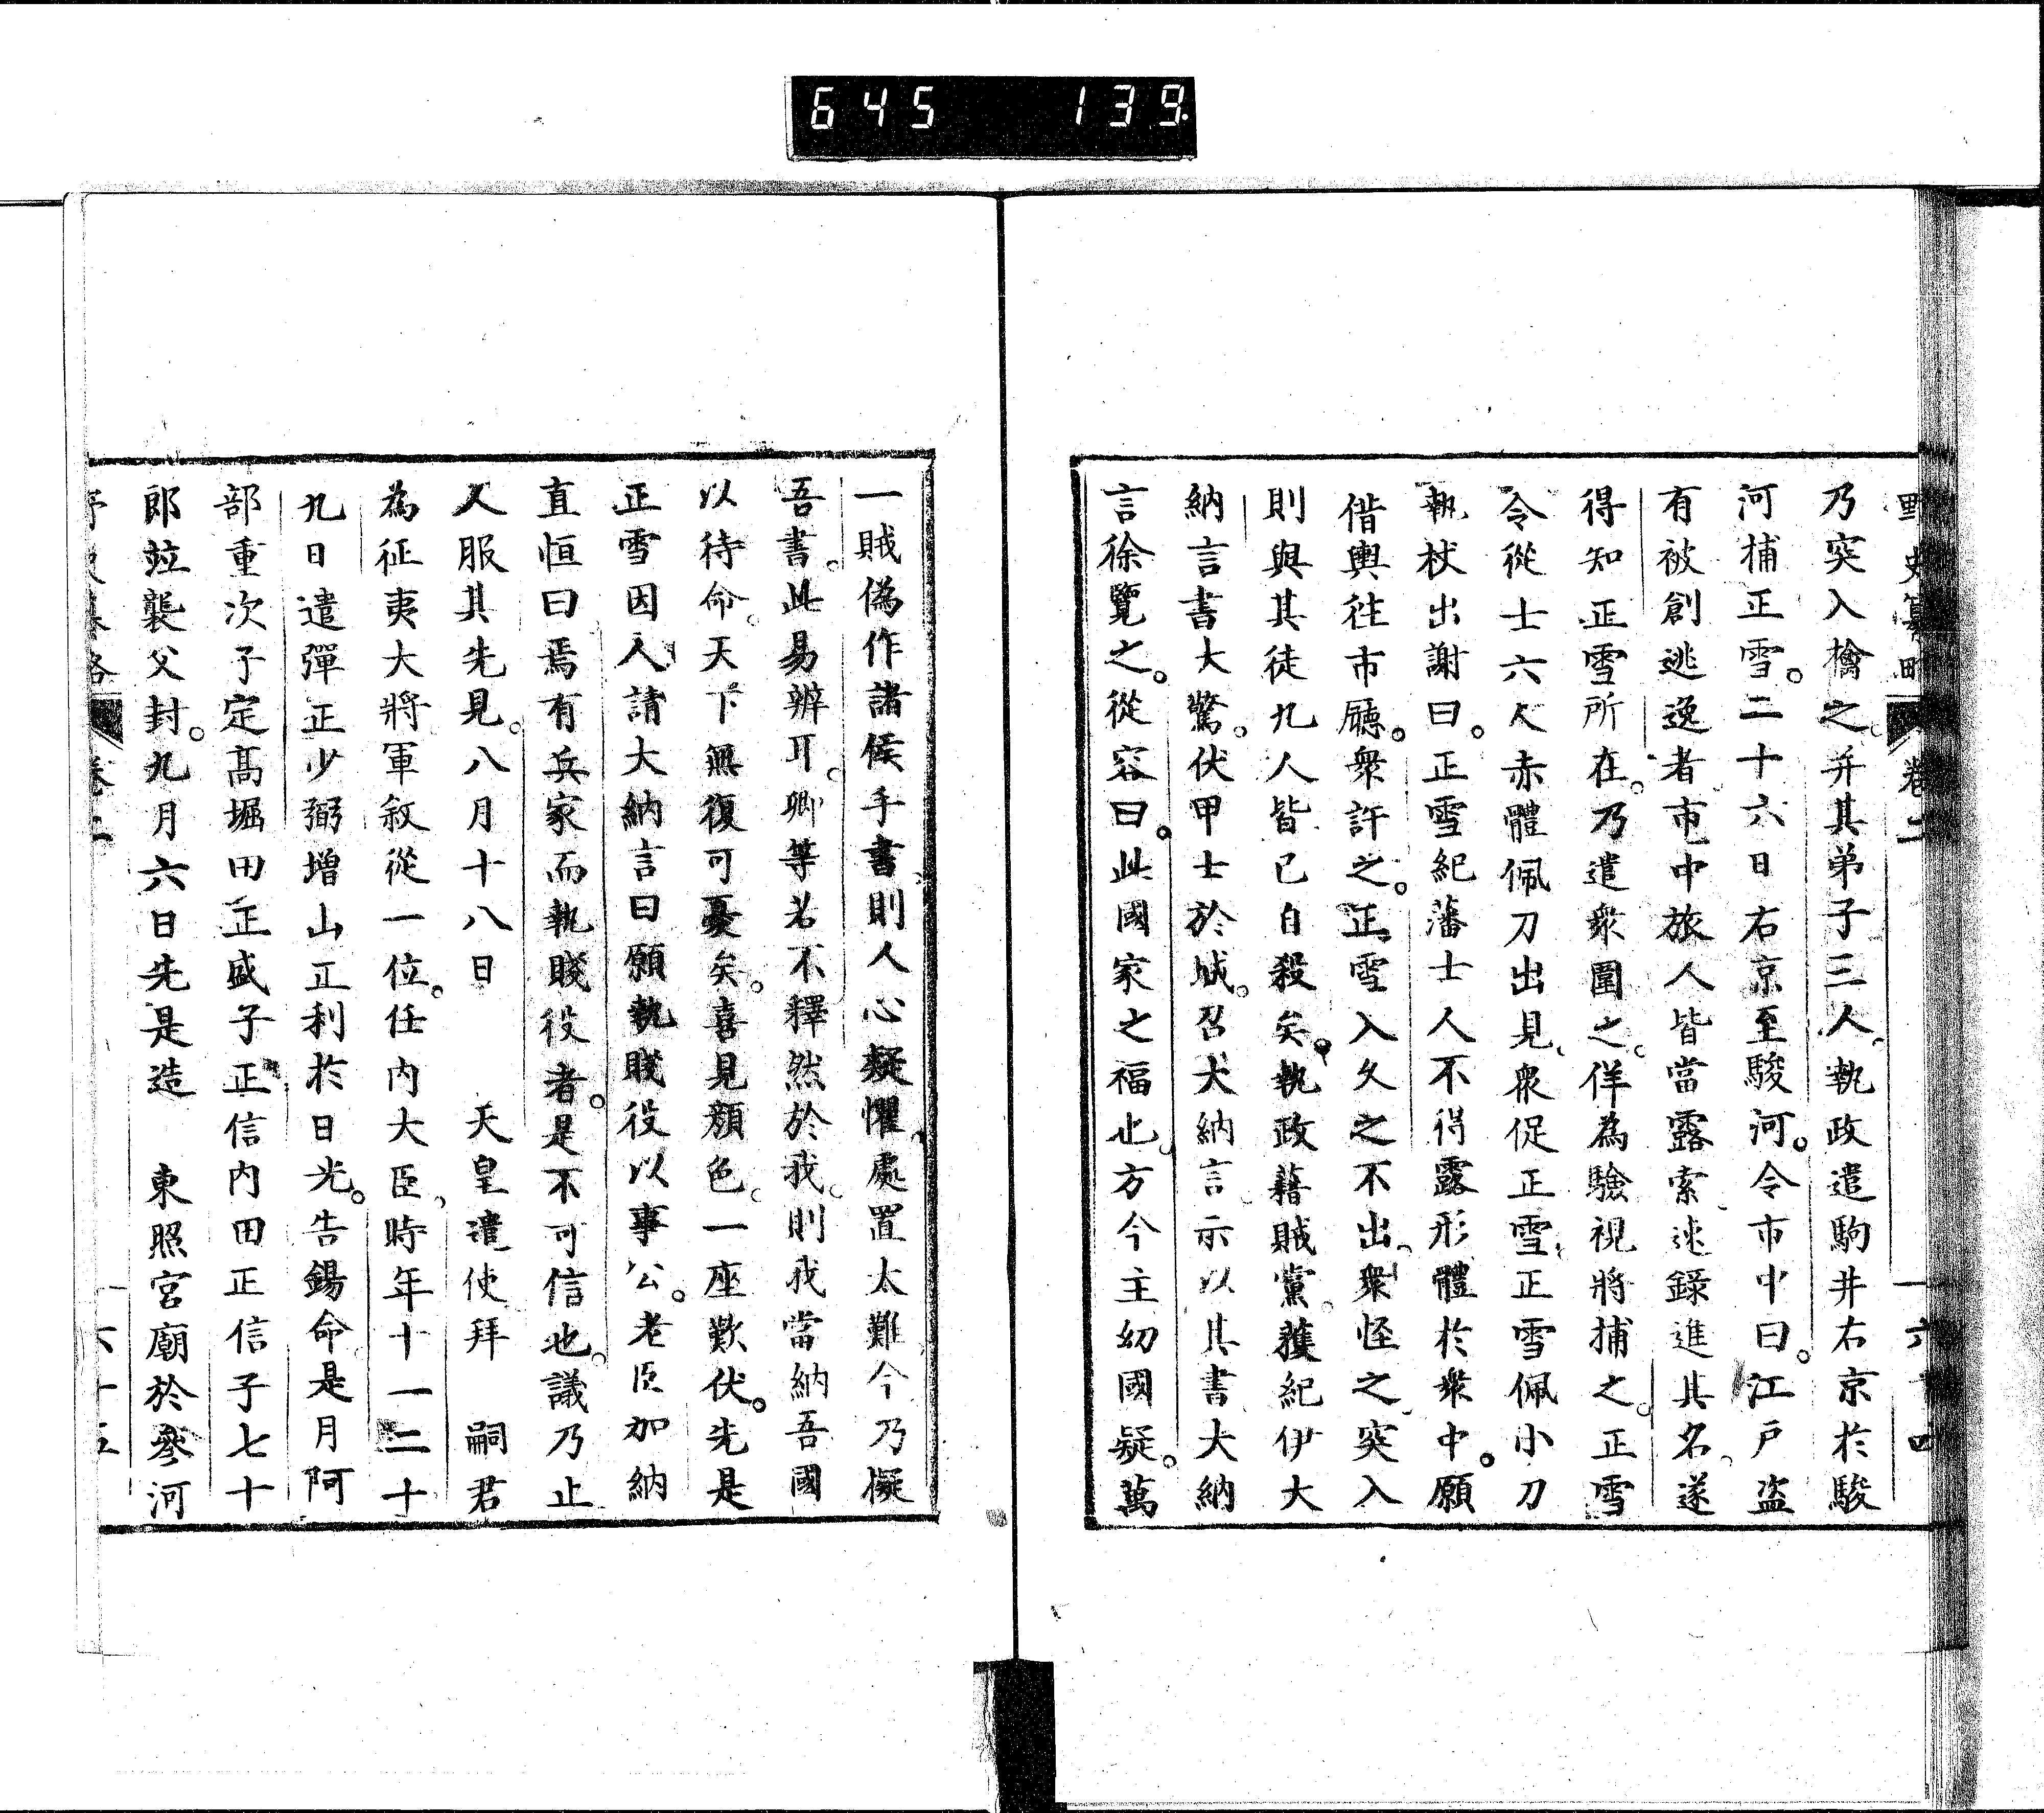 645 139
野史纂略 卷二 一 六十四
乃突入擒之。并其弟子三人、執政遣駒井右京於駿
河捕正雪。二十六日右京至駿河。令市中曰。江戸盜
有被創逃逸者、市中旅人皆當露索、逑錄進其名、遂
得知正雪所在。乃遣衆圍之、佯為驗視將捕之。正雪
令從士六人赤體佩刀出見、衆促正雪、正雪佩小刀
執杖出謝曰。正雪紀藩士人不得露形體於衆中。願
偕輿往市廳。衆許之。正雪入久之不出、衆怪之、突入
則與其徒九人皆已自殺矣。執政藉賊黨。獲紀伊大
納言書大驚。伏甲士於城。召大納言、示以其書大納
言徐覽之。從容曰。此國家之福也。方今主幼國疑。萬
一賊偽作諸侯手書、則人心疑懼、處置太難今乃擬
吾書。此易辨耳。卿等若不釋然於我。則我當納吾國
以待命。天下無復可憂矣。喜見顏色。一座歎伏。先是
正雪因人請大納言曰願執賤役以事公。老臣加納
直恒曰焉有兵家而執賤役者。是不可信也。議乃止
人服其先見。八月十八日 天皇遣使拜 嗣君
為征夷大將軍敘從一位。任内大臣、時年十一二十
九日遣彈正少弼增山正利於日光。告錫命是月阿
部重次子定高堀田正盛子正信内田正信子七十
郎竝襲父封。九月六日先是造 東照宮廟於參河
六十五